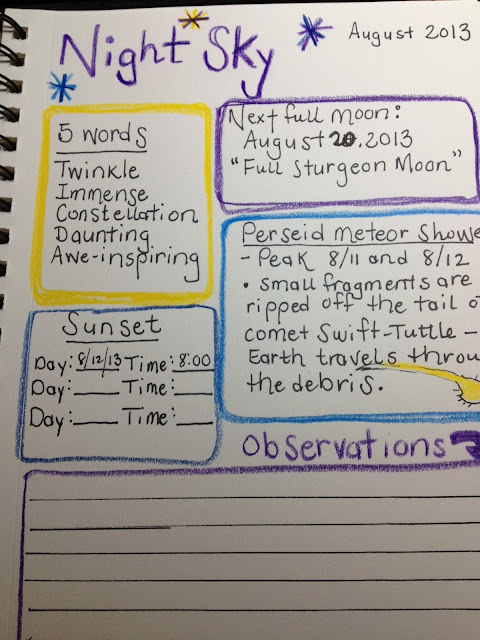 Night Sky
August 2013
5 words
Twinkle
Immense
Constellation
Daunting
Awe-inspiring
Next full moon:
August 20, 2013
"Full Sturgeon Moon"
Perseid Meteor Showe
- Peak 8/11 and 8/12
• small fragments are
ripped off the tail o
comet Swift-Tuttle -
Earth travels throu
the debris.
Sunset
Day: 8/12/13 Time: 8:00
Day:____ Time:____
Day:____ Time:____
Observations